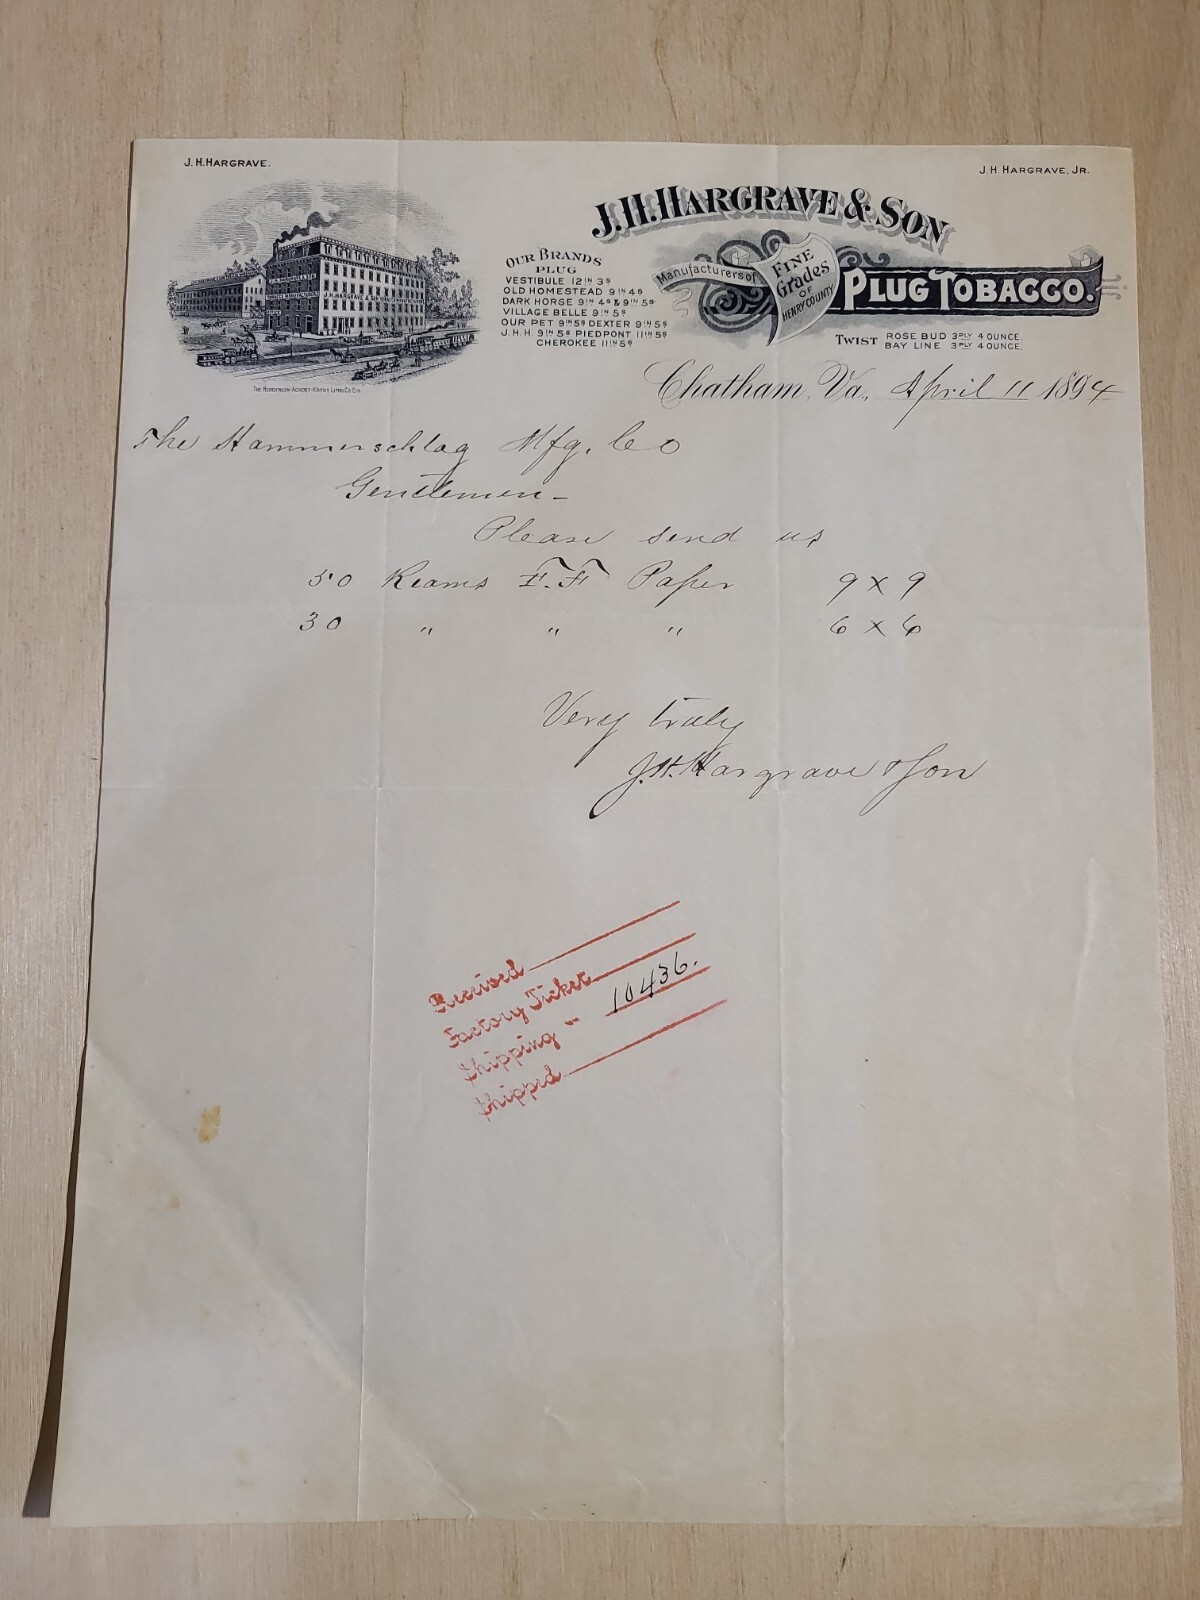 J. H. HARGRAVE.
J. H. HARGRAVE, JR.
J. H. HARGRAVE & SON
Manufacturers of
FINE
Grades
OF
HENRY COUNTY
PLUG TOBACCO.
OUR BRANDS
PLUG
VESTIBULE 12 IN 3S
OLD HOMESTEAD 9 IN 4S
DARK HORSE 9 IN 4S & 9 IN 5S
VILLAGE BELLE 9 IN 5S
OUR PET 9 IN 5S DEXTER 9 IN 5S
J.H.H 9 IN 5S PIEDPONT 11 IN 5S
CHEROKEE 11 IN 5S
TWIST ROSE BUD 3 PLY 4 OUNCE.
BAY LINE 3 PLY 4 OUNCE.
J.H. HARGRAVE & SON
Chatham, Va., April 11 1894
The Hammerschlag Mfg. Co
Gentlemen -
Please send us
50 Reams F.F Paper 9 x 9
30 " " " 6 x 6
Very truly
J.H. Hargrave & Son
Received
Factory Ticket
Shipping " 10436.
Shipped